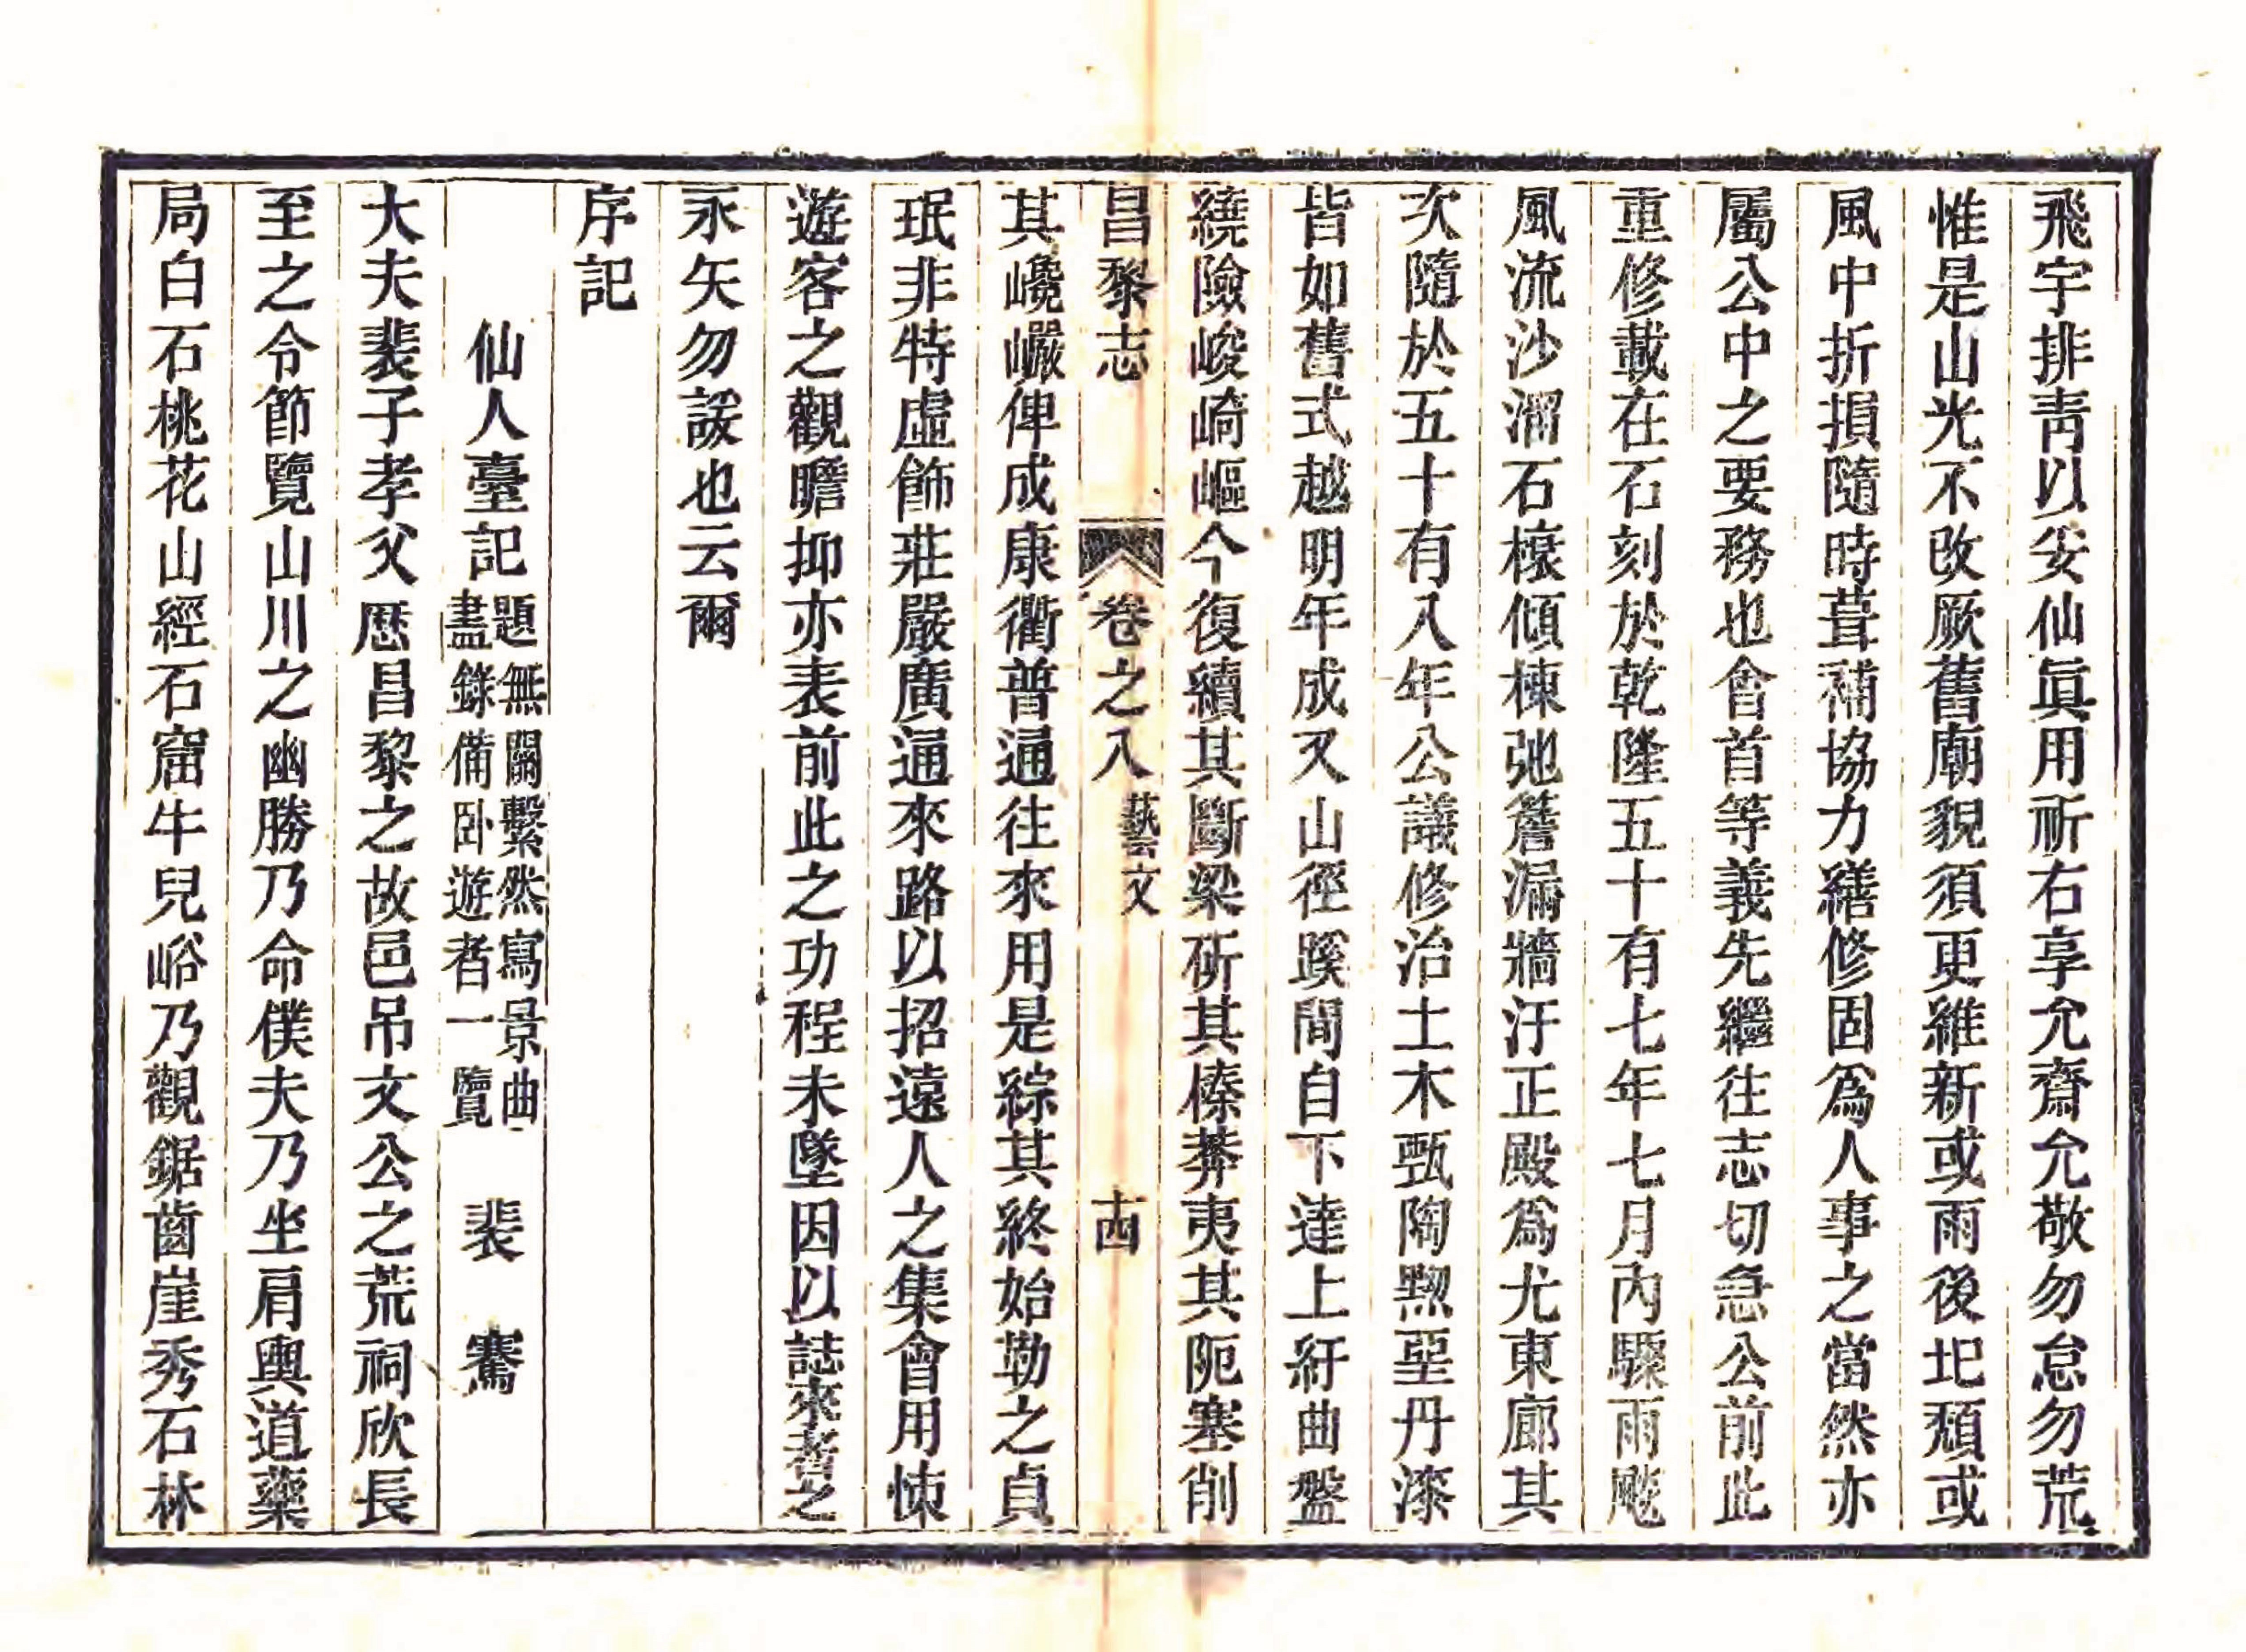 飛宇排靑以妥仙眞用祈右享允齋允敬勿怠勿荒
惟是山光不改厥舊廟貌須更維新或雨後圯頹或
風中折損隨時葺補協力繕修固爲人事之當然亦
屬公中之要務也會首等義先繼往志切急公前此
重修載在石刻於乾隆五十有七年七月內驟雨飈
風流沙溜石榱傾棟弛簷漏牆汙正殿爲尤東廊其
次隨於五十有八年公議修治土木甄陶黝堊丹漆
皆如舊式越明年成又山徑蹊間自下達上紆曲盤
繞險峻崎嶇今復續其斷梁斫其榛莽夷其阨塞削
昌黎志 卷之八 藝文 十四
其巉巖俾成康衢普通往來用是綜其終始勒之貞
珉非特虛飾莊嚴廣通來路以招遠人之集會用悚
遊客之觀瞻抑亦表前此之功程未墜因以誌來者之
永矢勿諼也云爾
序記
仙人臺記 題無關繫然寫景曲盡錄備卧遊者一覽 裴 騫
大夫裴子孝父歷昌黎之故邑吊文公之荒祠欣長
至之令節覽山川之幽勝乃命僕夫乃坐肩輿道藥
局白石桃花山經石窟牛兒峪乃觀鋸齒崖秀石林